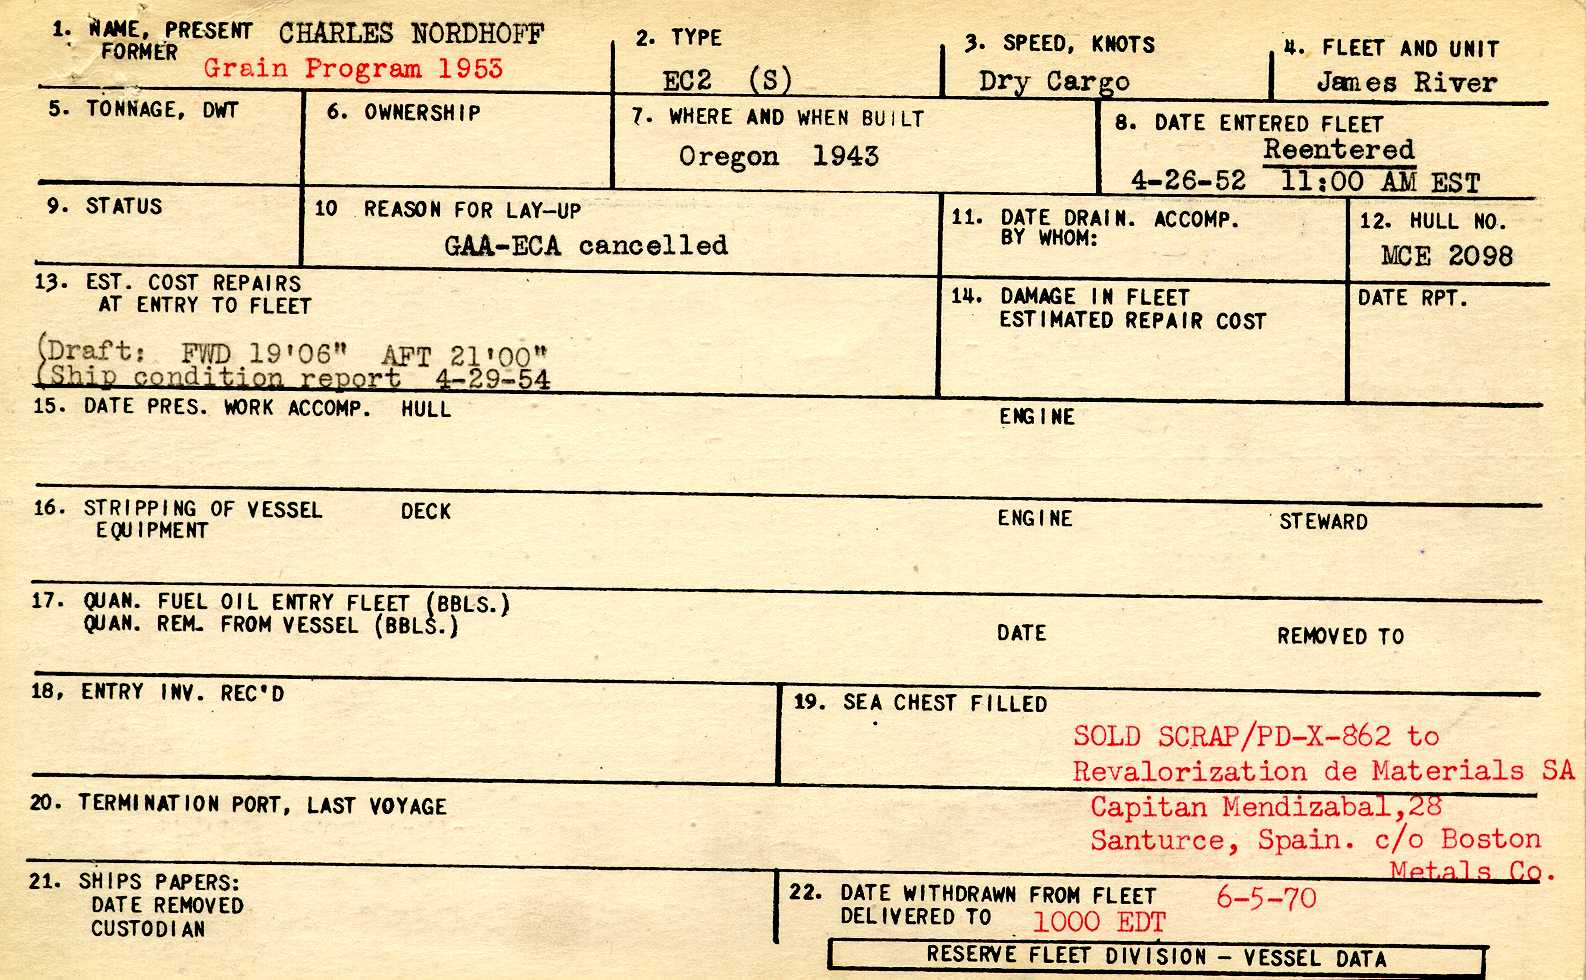 1. NAME, PRESENT CHARLES NORDHOFF
FORMER Grain Program 1953
2. TYPE
EC2 (S)
3. SPEED, KNOTS
Dry Cargo
4. FLEET AND UNIT
James River
5. TONNAGE, DWT
6. OWNERSHIP
7. WHERE AND WHEN BUILT
Oregon 1943
8. DATE ENTERED FLEET
Reentered
4-26-52 11:00 AM EST
9. STATUS
10 REASON FOR LAY-UP
GAA-ECA cancelled
11. DATE DRAIN. ACCOMP.
BY WHOM:
12. HULL NO.
MCE 2098
13. EST. COST REPAIRS
AT ENTRY TO FLEET
(Draft: FWD 19'06" AFT 21'00"
(Ship condition report 4-29-54
14. DAMAGE IN FLEET
ESTIMATED REPAIR COST
DATE RPT.
15. DATE PRES. WORK ACCOMP. HULL ENGINE
16. STRIPPING OF VESSEL DECK ENGINE STEWARD
EQUIPMENT
17. QUAN. FUEL OIL ENTRY FLEET (BBLS.)
QUAN. REM. FROM VESSEL (BBLS.) DATE REMOVED TO
18, ENTRY INV. REC'D
19. SEA CHEST FILLED
SOLD SCRAP/PD-X-862 to
Revalorization de Materials SA
Capitan Mendizabal,28
Santurce, Spain. c/o Boston
Metals Co.
20. TERMINATION PORT, LAST VOYAGE
21. SHIPS PAPERS:
DATE REMOVED
CUSTODIAN
22. DATE WITHDRAWN FROM FLEET 6-5-70
DELIVERED TO 1000 EDT
RESERVE FLEET DIVISION - VESSEL DATA